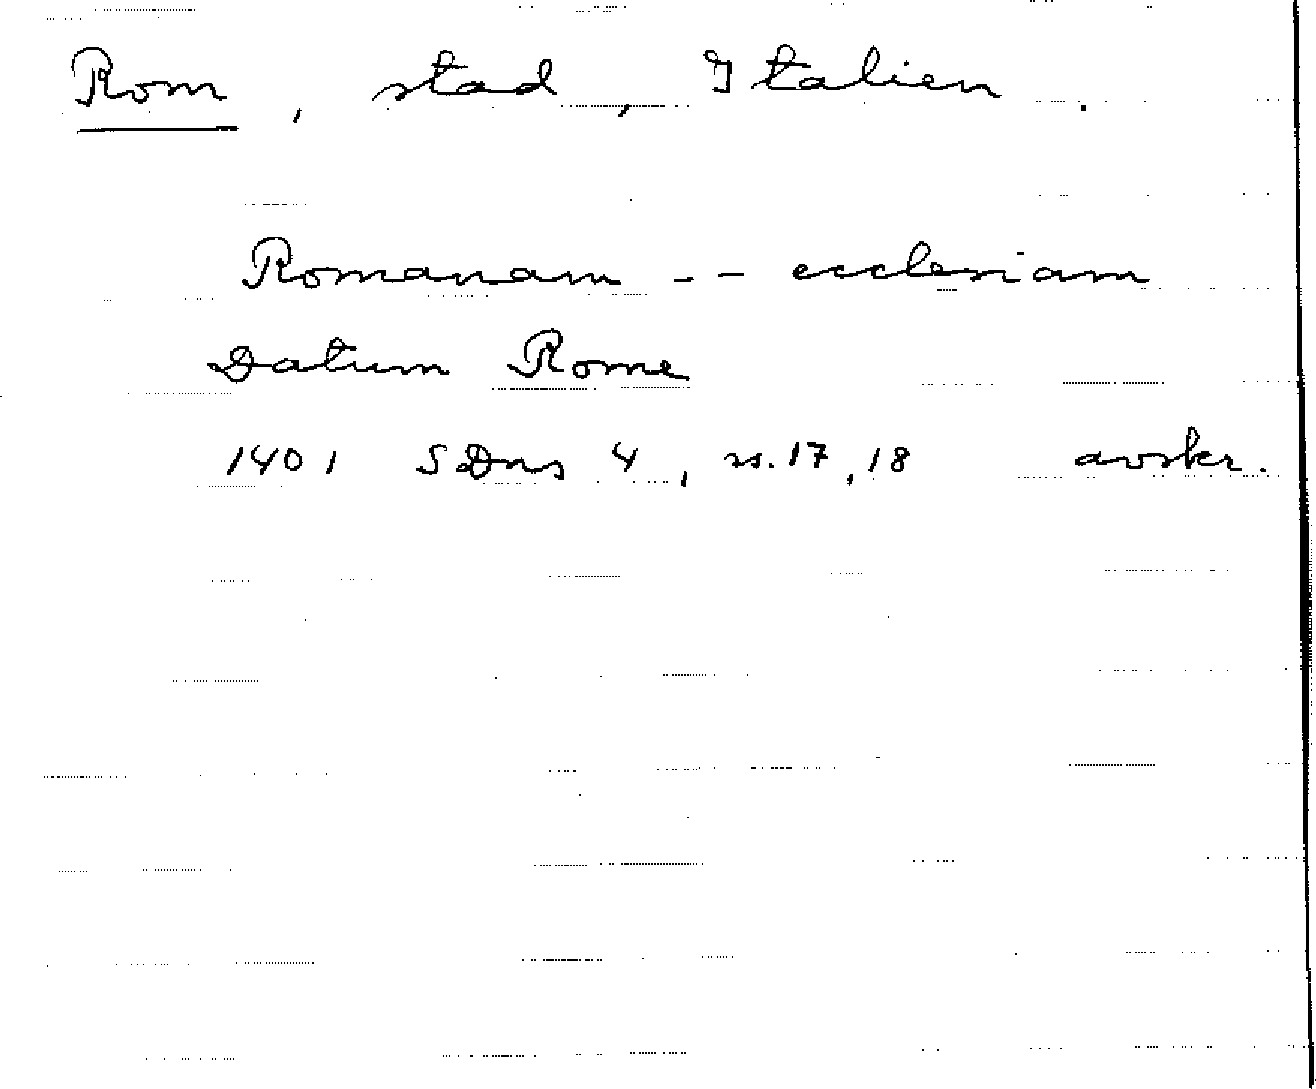 Rom, stad, Italien.
Romanam - - ecclesiam
Datum Rome
1401 SDns 4, ss. 17, 18 avskr.